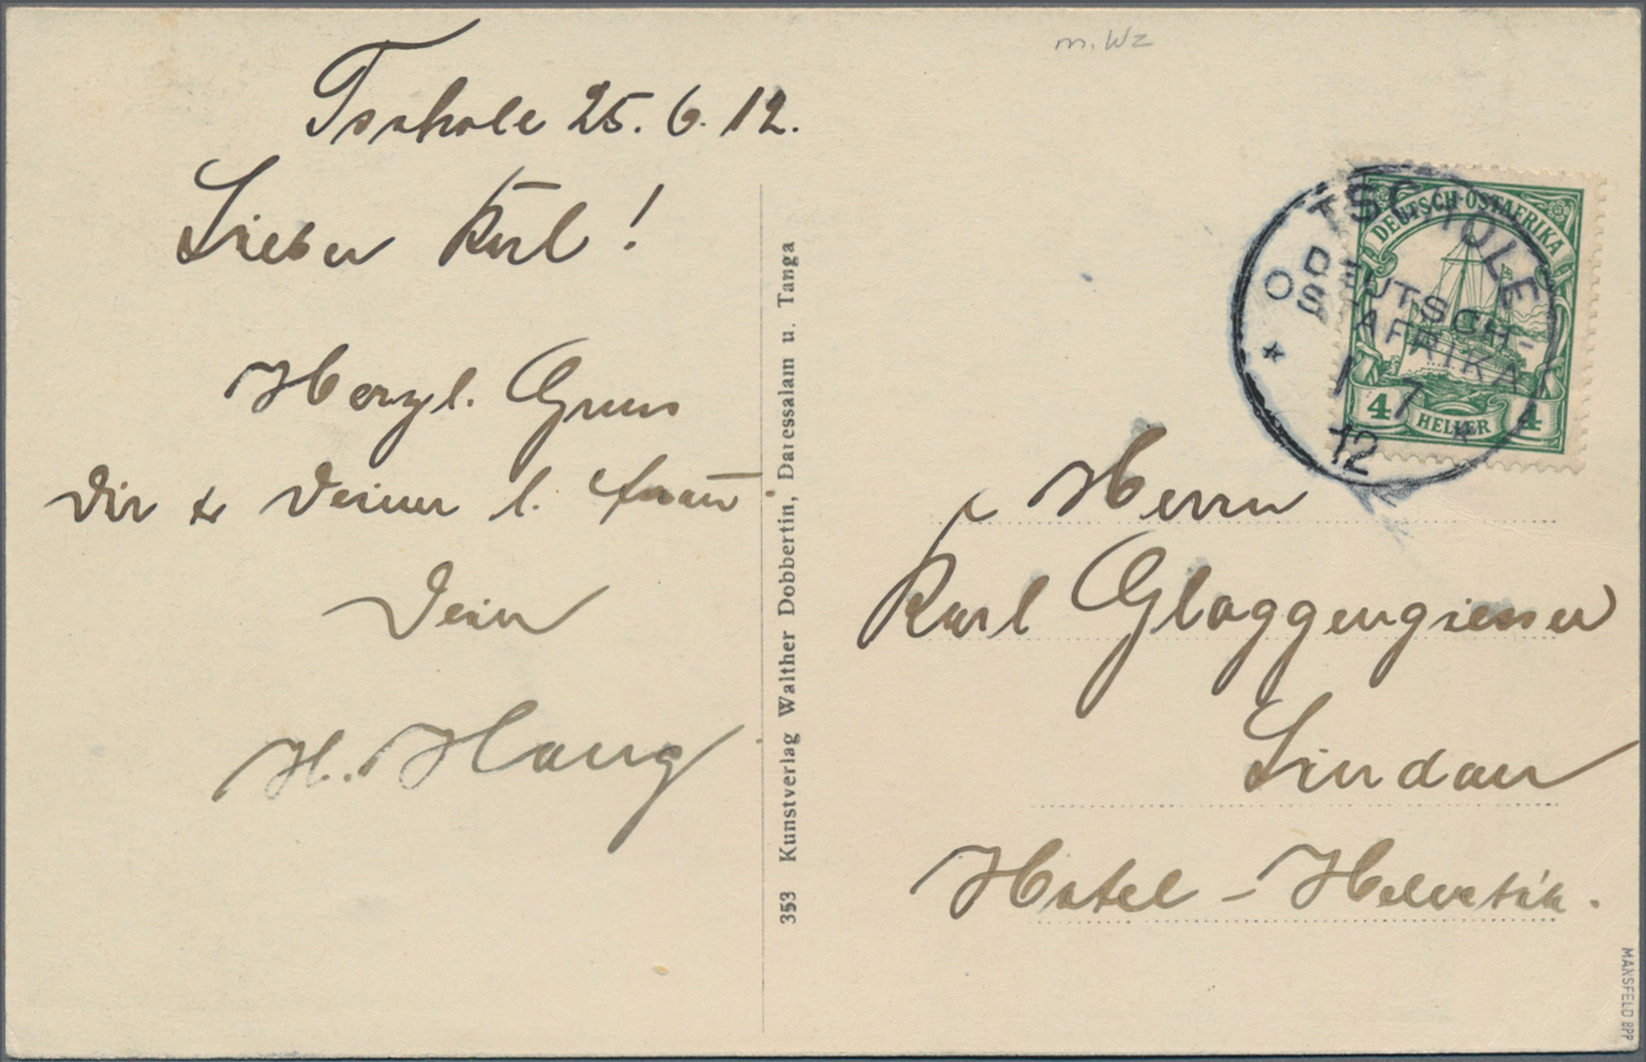 m. Wz
Tschole 25. 6. 12.
Lieber Karl!
Herzl. Gruss
Dir & Deiner l. Frau
Dein
H. Haug
353 Kunstverlag Walther Dobbertin, Daressalam u. Tanga
DEUTSCH-OSTAFRIKA
4 HELLER 4
TSCHOLE
DEUTSCH-
OSTAFRIKA
1 7
12
Herrn
Karl Gloggengiesser
Lindau
Hotel - Helvetia.
MANSFELD BPP